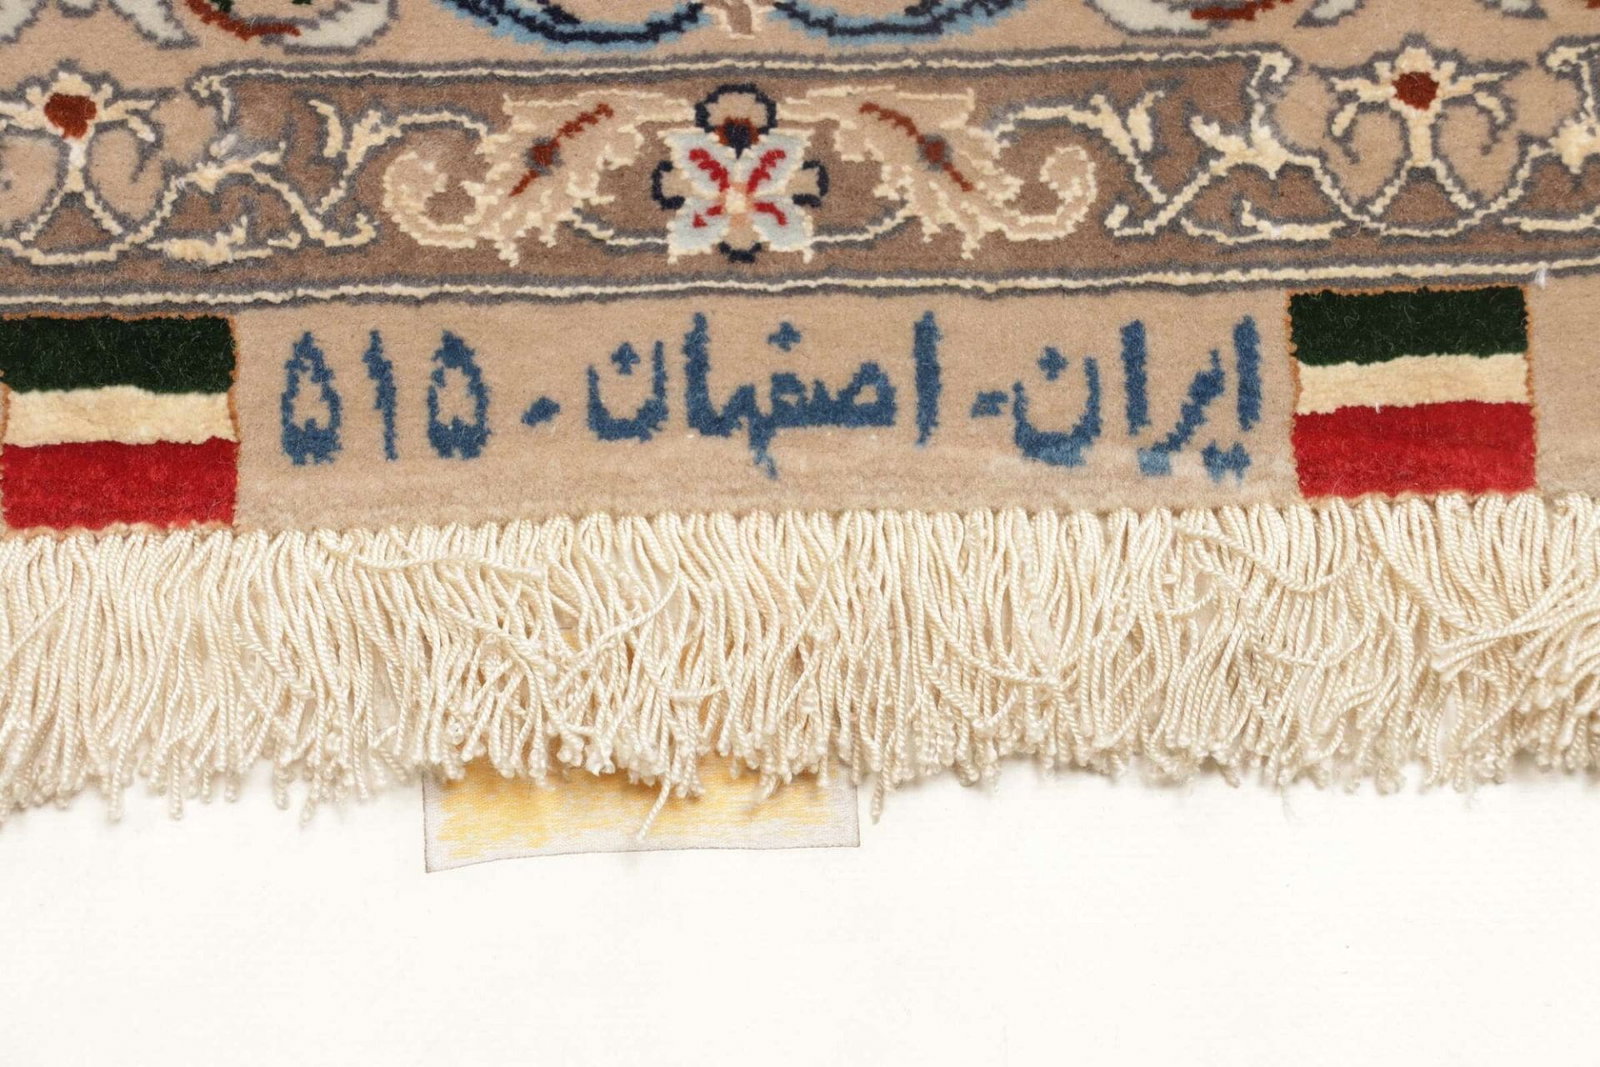 ایران - اصفهان - ۵۱۵